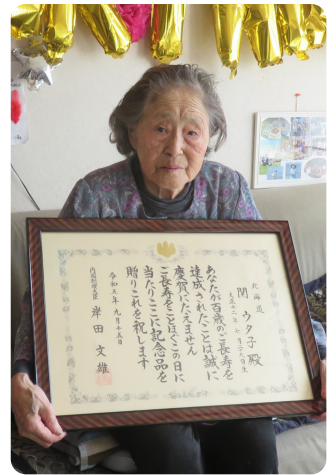 北海道
関 ウタ子 殿
あなたが百歳のご長寿を
達成されたことは誠に
慶賀にたえません
ご長寿をことほぐこの日に
当たりここに記念品を
贈りこれを祝します
令和五年九月十五日
内閣総理大臣 岸田文雄